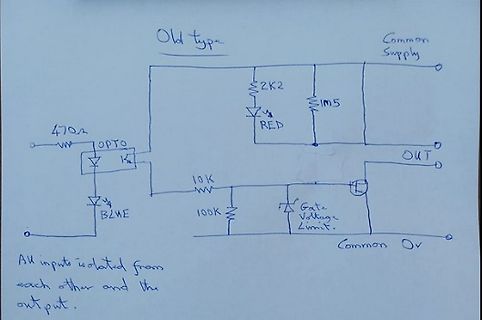 Old type
Common
Supply
2K2
RED
1M5
470Ω
OPTO
OUT
10K
BLUE
100K
Gate
Voltage
Limit.
Common 0v
All inputs isolated from
each other and the
output.